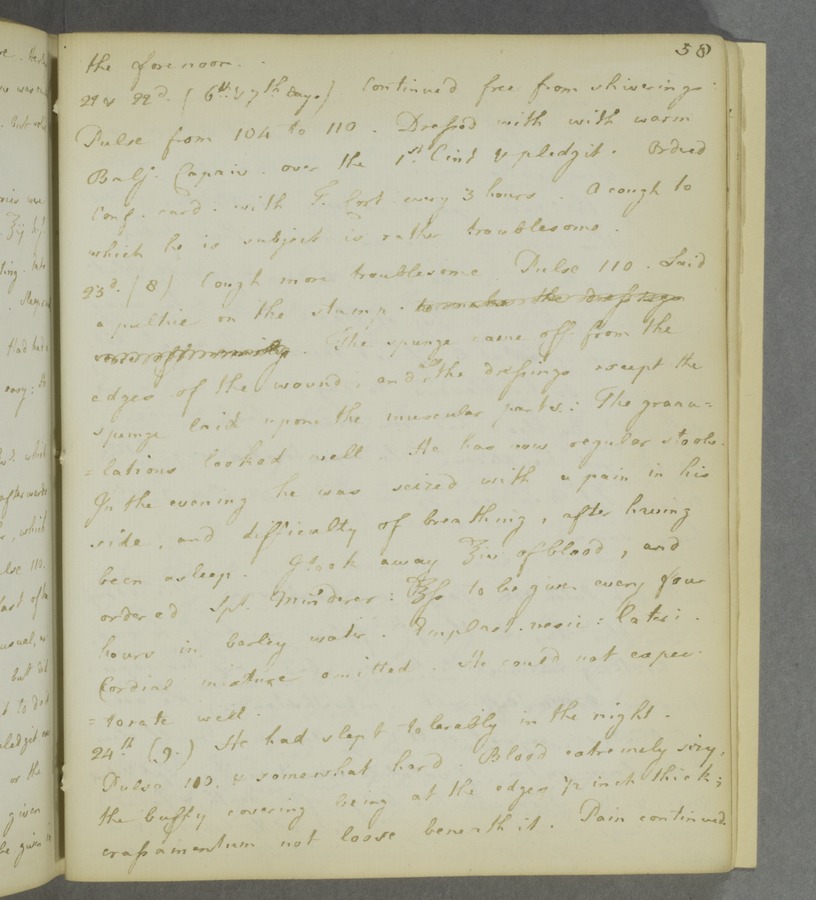 58
the forenoon.
21 & 22d. (6th & 7th Days) Continued free from shiverings:
Pulse from 104 to 110. Dressed with with warm
Bals. Capaiv. over the 1st Lint & pledgit. Ordered
Conf. card. with T. Cort every 3 hours. A cough to
which he is subject is rather troublesome.
23d. (8) Cough more troublesome Pulse 110. Laid
a pultice on the stump. to make the dressings
The spunge came off from the
edges of the wound, and all the dressings except the
spunge laid upon the muscular parts: The granu=
=lations looked well. He has now regular stools.
In the evening he was seized with a pain in his
side, and difficulty of breathing, after having
been asleep. I took away ℥iv of blood, and
ordered Spt. Minderer: ℥ss to be given every four
hours in barley water. Emplast. vesic: lateri.
Cordial mixture omitted. He could not expec-
=torate well.
24th (9.) He had slept tolerably in the night.
Pulse 110. & somewhat hard. Blood extremely sizy,
the buffy covering being at the edges 1/2 inch thick;
crassamentum not loose beneath it. Pain continued.